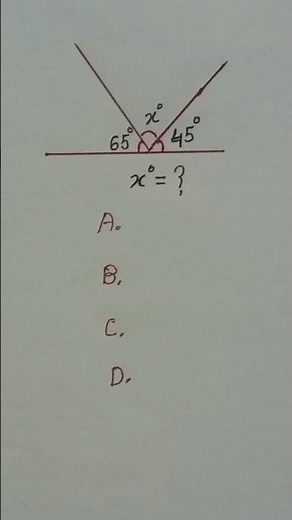 x°
65° 45°
x° = ?
A.
B.
C.
D.